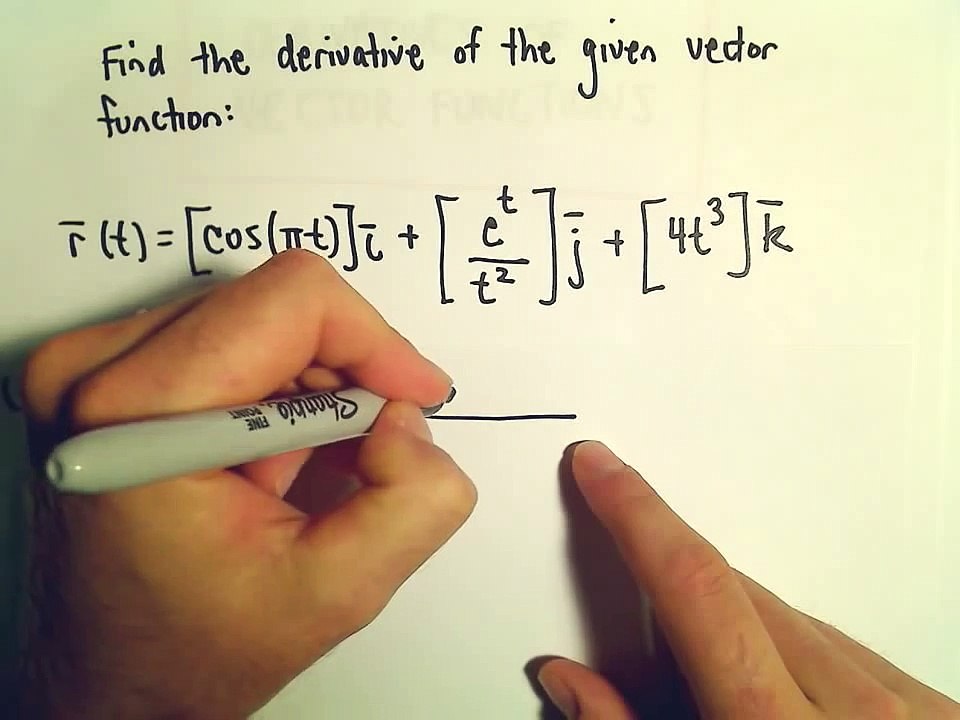 Find the derivative of the given vector
function:
r̄(t) = [cos(πt)]ī + [e^t/t^2]j̄ + [4t^3]k̄
Sharpie
FINE
POINT